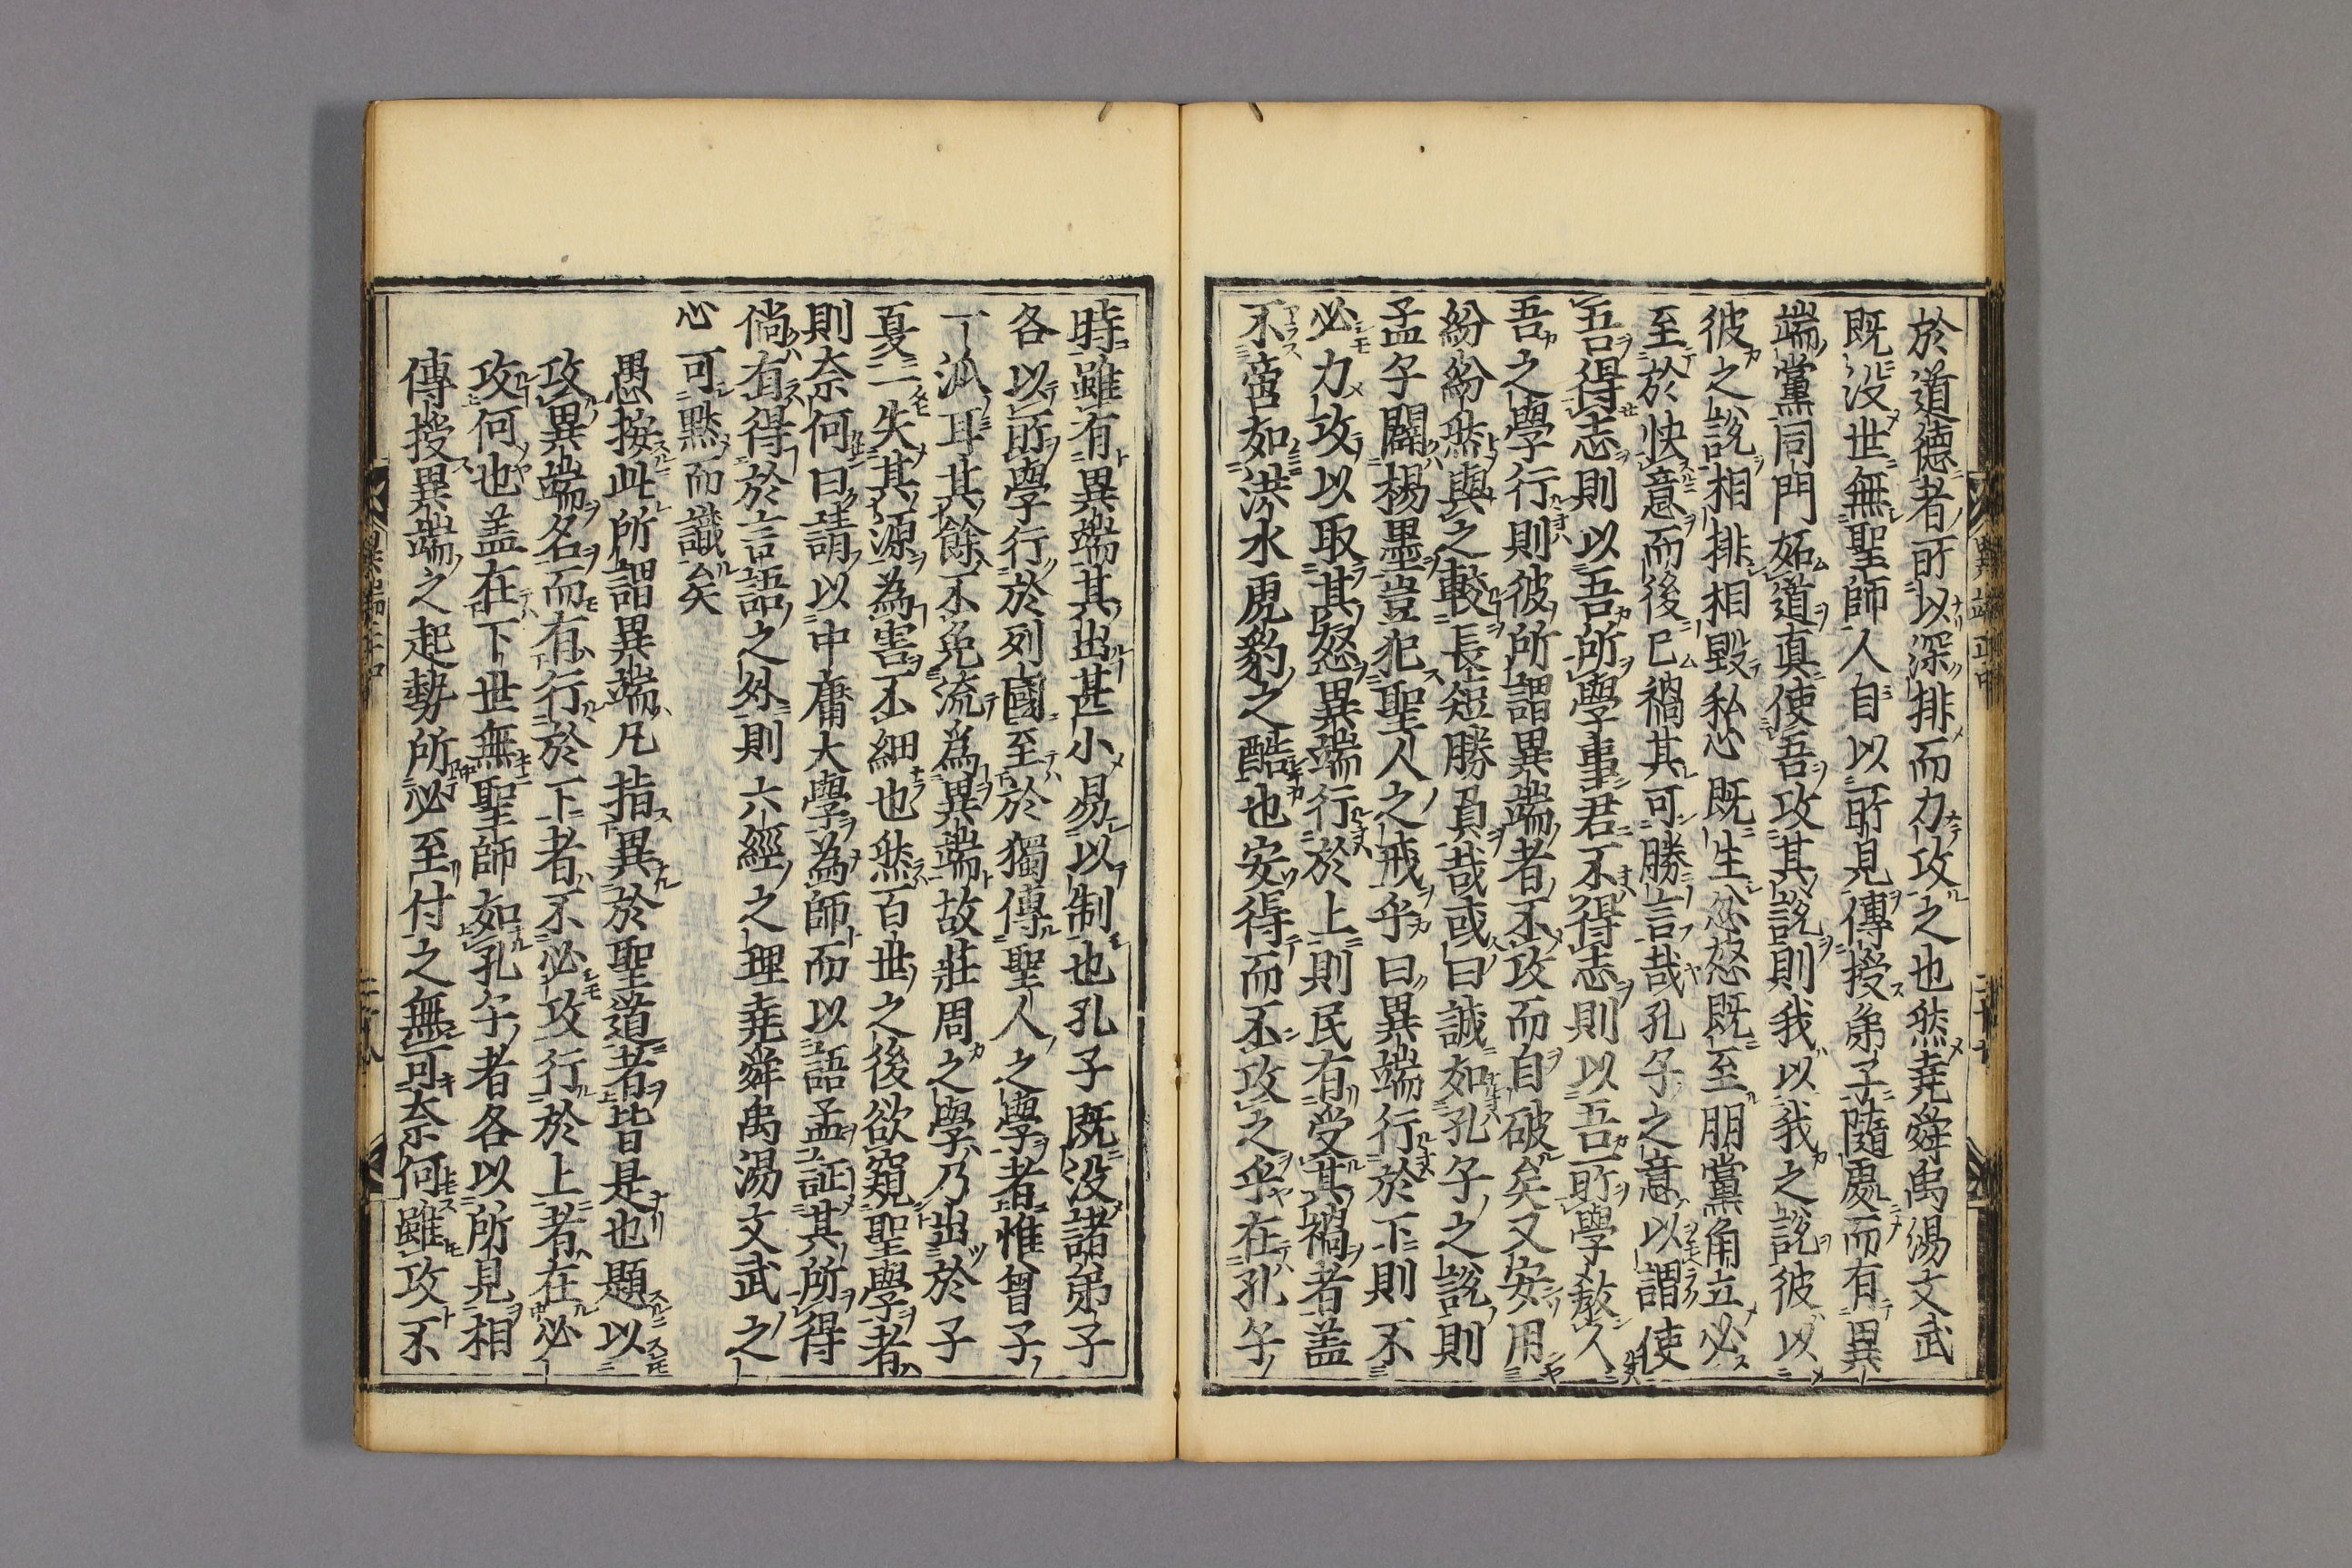 於道德者所以深排而力攻之也然堯舜禹湯文武
既沒世無聖師人自以所見傳授弟子隨處而有異
端黨同門妬道真使吾攻其說則我以我之說彼以
彼之說相排相毀私心既生忿怒既至朋黨角立必
至於快意而後已禍其可勝言哉孔子之意以謂使
吾得志則以吾所學事君不得志則以吾所學教人
吾之學行則彼所謂異端者不攻而自破矣又安用
紛紛然與之較長短勝負哉或曰誠如孔子之說則
孟子闢楊墨豈犯聖人之戒乎曰異端行於下則不
必力攻以取其怒異端行於上則民有受其禍者盖
不啻如洪水虎豹之酷也安得而不攻之乎在孔子
時雖有異端其出甚小易以制也孔子既沒諸弟子
各以所學行於列國至於獨傳聖人之學者惟曾子
一派耳其餘不免流為異端故莊周之學乃出於子
夏一失其源為害不細也然百世之後欲窺聖學者
則奈何曰請以中庸大學為師而以語孟証其所得
倘有得於言語之外則六經之理堯舜禹湯文武之
心可默而識矣
愚按此所謂異端凡指異於聖道者皆是也題以
攻異端名而有行於下者不必攻行於上者在必
攻何也盖在下世無聖師如孔子者各以所見相
傳授異端之起勢所必至付之無可奈何雖攻不